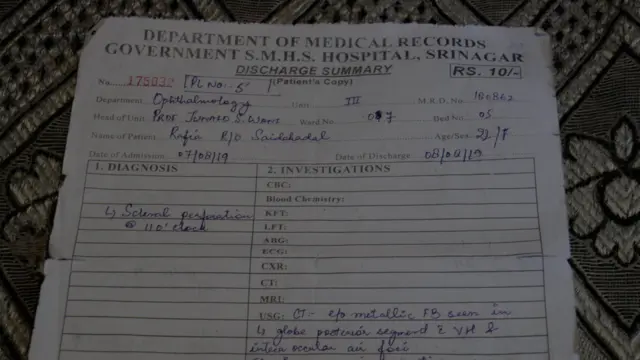 DEPARTMENT OF MEDICAL RECORDS
GOVERNMENT S.M.H.S. HOSPITAL, SRINAGAR
DISCHARGE SUMMARY RS. 10/-
No. 175032 [PL No: 5 (Patient's Copy)
Department Ophthalmology Unit III M.R.D. No. 180862
Head of Unit Prof Ward No. 07 Bed No. 05
Name of Patient Rafia D/O Age/Sex 22/F
Date of Admission 07/08/19 Date of Discharge 08/08/19
1. DIAGNOSIS 2. INVESTIGATIONS
CBC:
Blood Chemistry:
↳ Scleral perforation KFT:
@ 11 o'clock LFT:
ABG:
ECG:
CXR:
CT:
MRI:
USG: CT - e/o metallic FB seen in
↳ globe posterior segment c̄ VH &
intra occular air foci